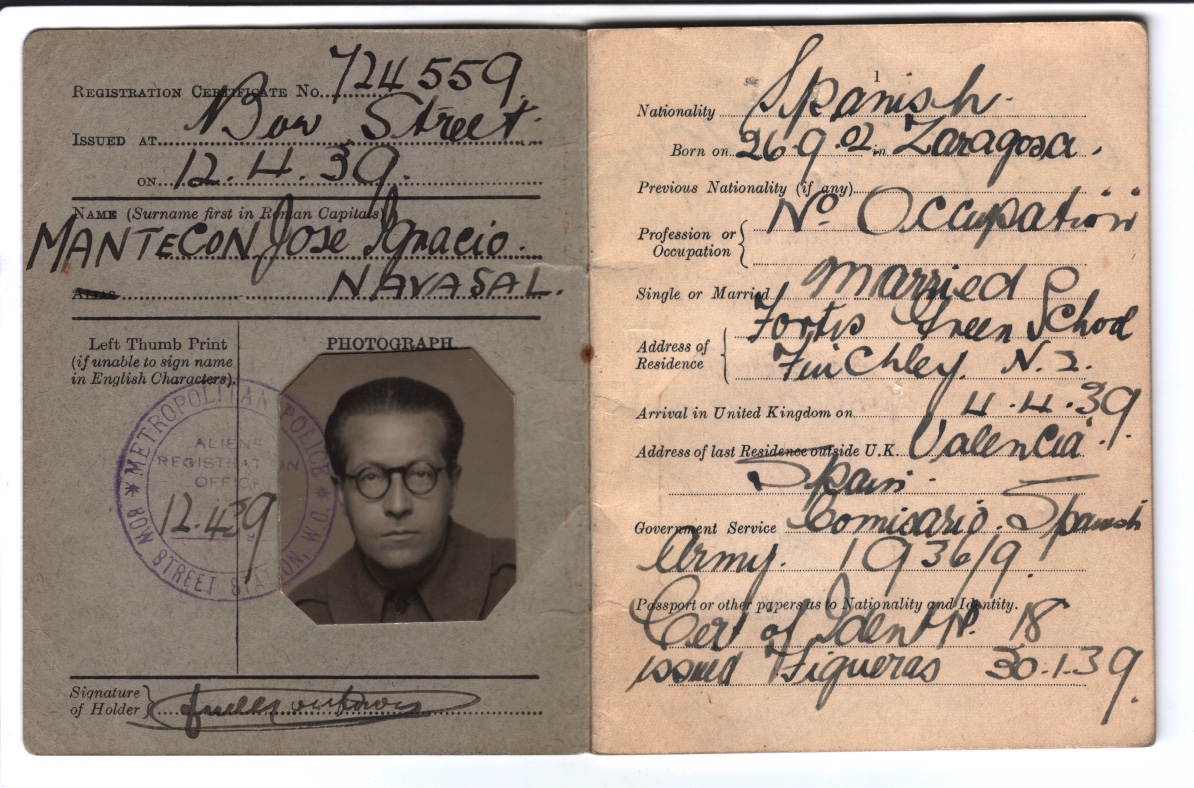 REGISTRATION CERTIFICATE No. 724559
ISSUED AT Bow Street
ON 12.4.39.
NAME (Surname first in Roman Capitals)
MANTECON Jose Ignacio.
NAVASAL.
Left Thumb Print
(if unable to sign name
in English Characters).
PHOTOGRAPH.
METROPOLITAN POLICE
BOW STREET STATION, W.C.
ALIENS
REGISTRATION
OFFICE
12.4.39
Signature
of Holder
1
Nationality Spanish.
Born on 26.9.02. in Zaragosa.
Previous Nationality (if any)
Profession or
Occupation
No Occupation
Single or Married Married
Address of
Residence
Fortis Green School
Finchley. N.2.
Arrival in United Kingdom on 4.4.39.
Address of last Residence outside U.K. Valencia.
Spain.
Government Service Comisario. Spanish
Army. 1936/9.
Passport or other papers as to Nationality and Identity.
Cert of Ident 18
issued Figueras 30.1.39.